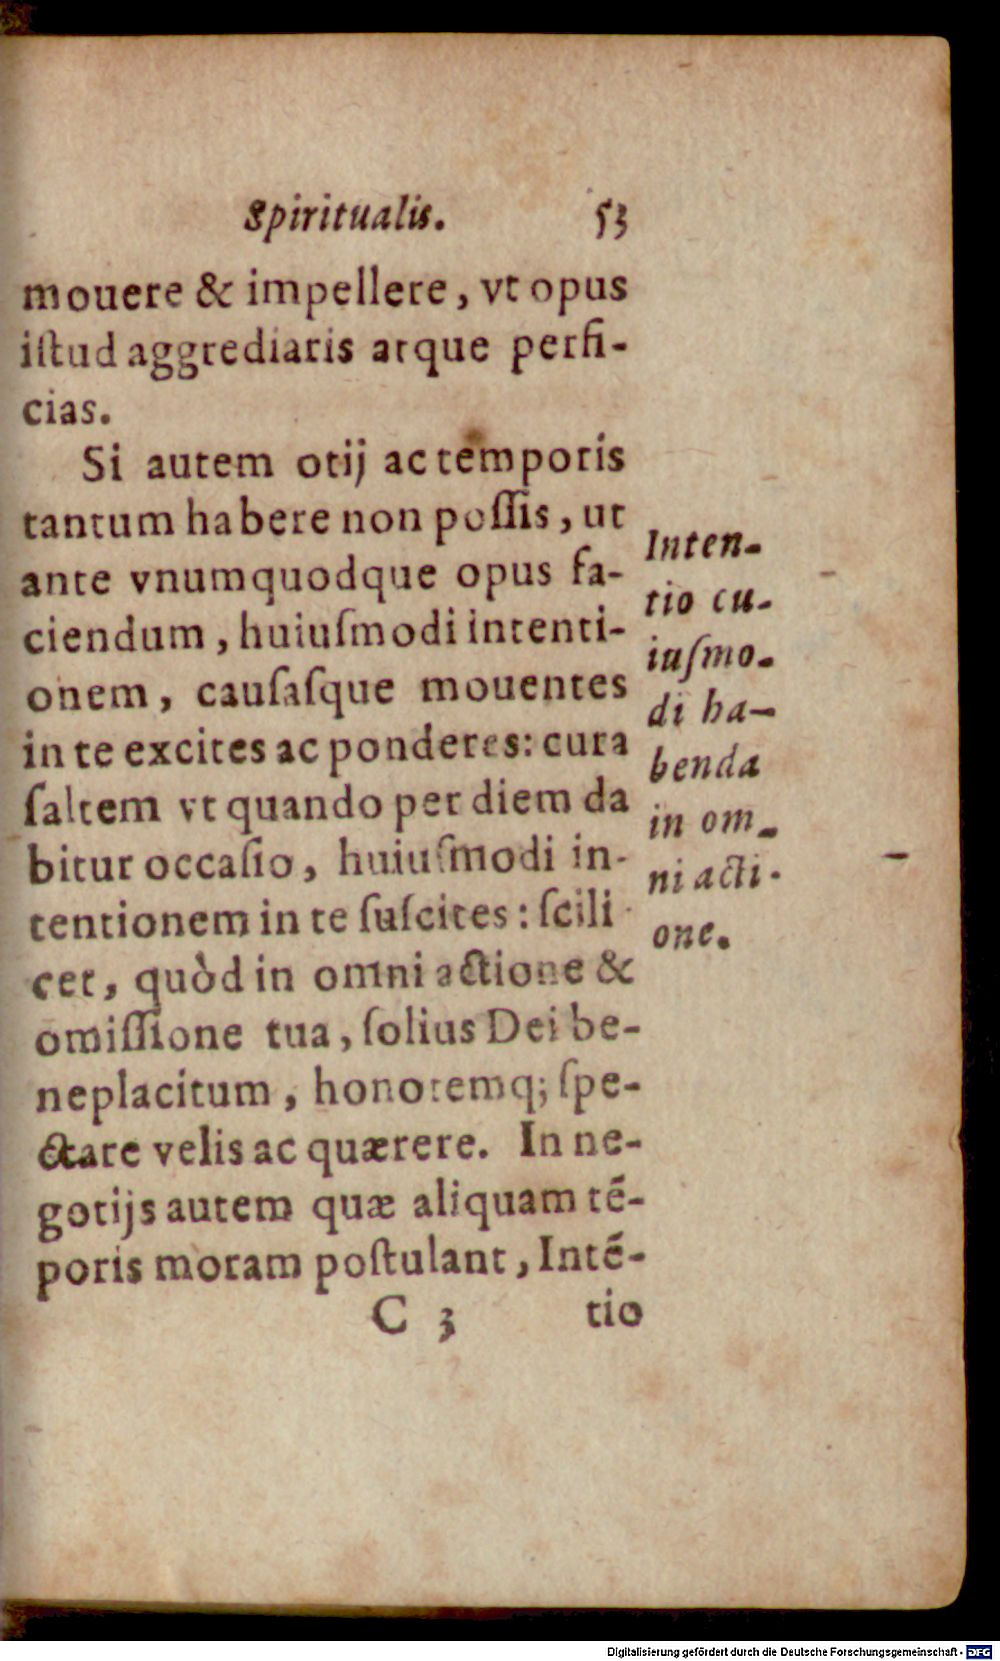 Spiritualis. 53
mouere & impellere, vt opus
iſtud aggrediaris atque perfi-
cias.
Si autem otij ac temporis
tantum habere non poſſis, ut
ante vnumquodque opus fa-
ciendum, huiuſmodi intenti-
onem, cauſaſque mouentes
in te excites ac ponderes: cura
ſaltem vt quando per diem da
bitur occaſio, huiuſmodi in-
tentionem in te ſuſcites: ſcili
cet, quòd in omni actione &
omiſſione tua, ſolius Dei be-
neplacitum, honoremq; ſpe-
ctare velis ac quærere. In ne-
gotijs autem quæ aliquam tē-
poris moram poſtulant, Intē-
C 3 tio
Inten-
tio cu-
iuſmo-
di ha-
benda
in om-
ni acti-
one.
Digitalisierung gefördert durch die Deutsche Forschungsgemeinschaft - DFG